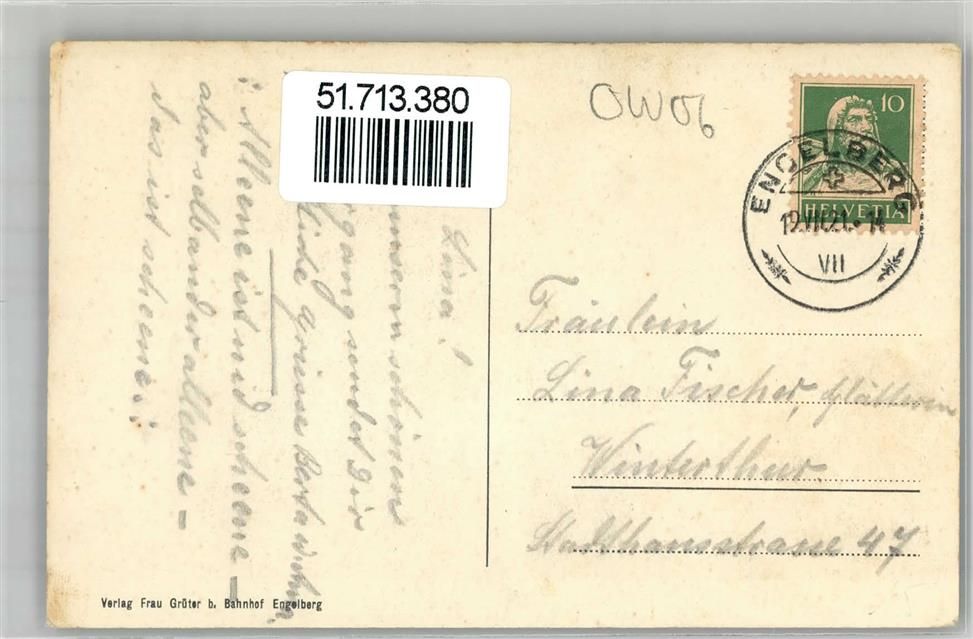 51.713.380
OW06
10
HELVETIA
ENGELBERG
12.VII.21.-14
VII
Lina!
unserm schönen
gang sendet Dir
liche Grüsse Berta
: Alleene ist nid scheene –
aber selbander alleene –
das ist scheene. :
Fräulein
Lina Fischer, Glätterin
Winterthur
Stadthausstrasse 47
Verlag Frau Grüter b. Bahnhof Engelberg